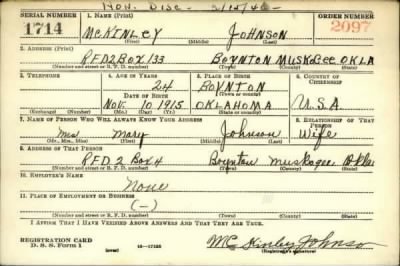 Hon. Disc - 3/15/46 -
SERIAL NUMBER 1. NAME (Print) ORDER NUMBER
1714 McKENLEY JOHNSON 2097
(First) (Middle) (Last)
2. ADDRESS (Print)
RFD 2 BOX 133 BOYNTON MUSKOGEE OKLA
(Number and street or R. F. D. number) (Town) (County) (State)
3. TELEPHONE 4. AGE IN YEARS 5. PLACE OF BIRTH 6. COUNTRY OF CITIZENSHIP
24 BOYNTON
(Town or county)
DATE OF BIRTH
NOV. 10 1915 OKLAHOMA U.S.A
(Exchange) (Number) (Mo.) (Day) (Yr.) (State or country)
7. NAME OF PERSON WHO WILL ALWAYS KNOW YOUR ADDRESS 8. RELATIONSHIP OF THAT PERSON
Mrs Mary Johnson Wife
(Mr., Mrs., Miss) (First) (Middle) (Last)
9. ADDRESS OF THAT PERSON
RFD 2 Box 4 Boynton Muskogee Okla
(Number and street or R. F. D. number) (Town) (County) (State)
10. EMPLOYER'S NAME
None
11. PLACE OF EMPLOYMENT OR BUSINESS
(-)
(Number and street or R. F. D. number) (Town) (County) (State)
I AFFIRM THAT I HAVE VERIFIED ABOVE ANSWERS AND THAT THEY ARE TRUE.
REGISTRATION CARD
D. S. S. Form 1 16-17105 McKinley Johnson
(Registrant's signature)